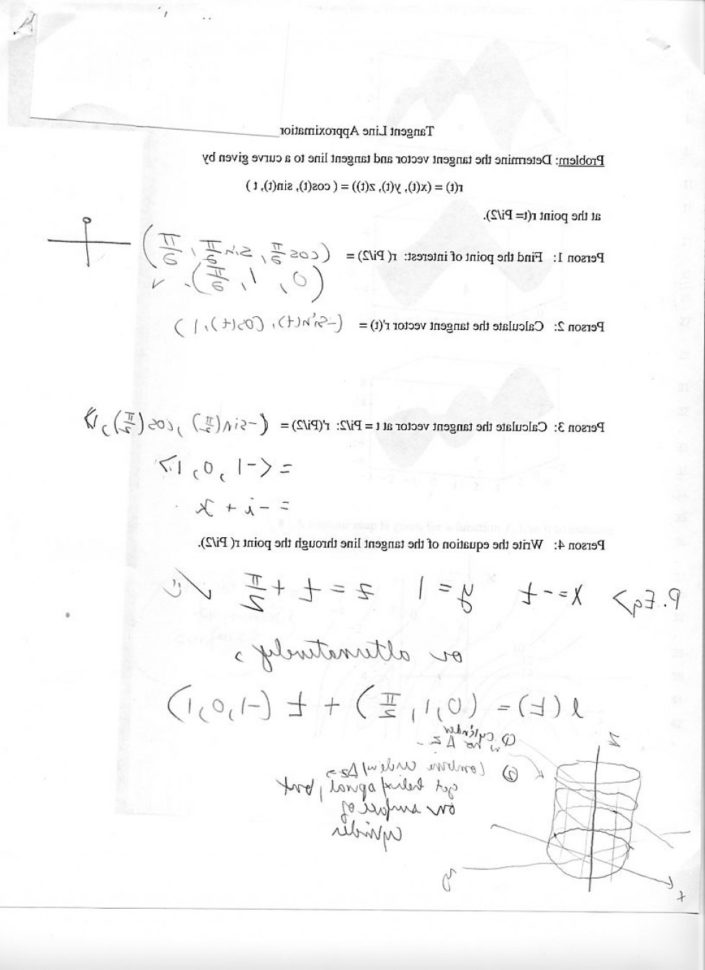 Tangent Line Approximation
Problem: Determine the tangent vector and tangent line to a curve given by
r(t) = (x(t), y(t), z(t)) = ( cos(t), sin(t), t )
at the point r(t= Pi/2).
Person 1: Find the point of interest: r( Pi/2) = (cos π/2, sin π/2, π/2)
(0, 1, π/2). ✓
Person 2: Calculate the tangent vector r'(t) = (-sin(t), cos(t), 1)
Person 3: Calculate the tangent vector at t = Pi/2: r'(Pi/2) = (-sin(π/2), cos(π/2), 1)
= <-1, 0, 1>
= -i + k
Person 4: Write the equation of the tangent line through the point r( Pi/2).
P.Eq> x=-t y=1 z=t+π/2 ✓
or alternatively,
l(t) = (0,1,π/2) + t(-1,0,1)
① cylinder
no Δz
② Combine circle w/ Δz =>
get helix/spiral, but
on surface of
cylinder
z
y
x